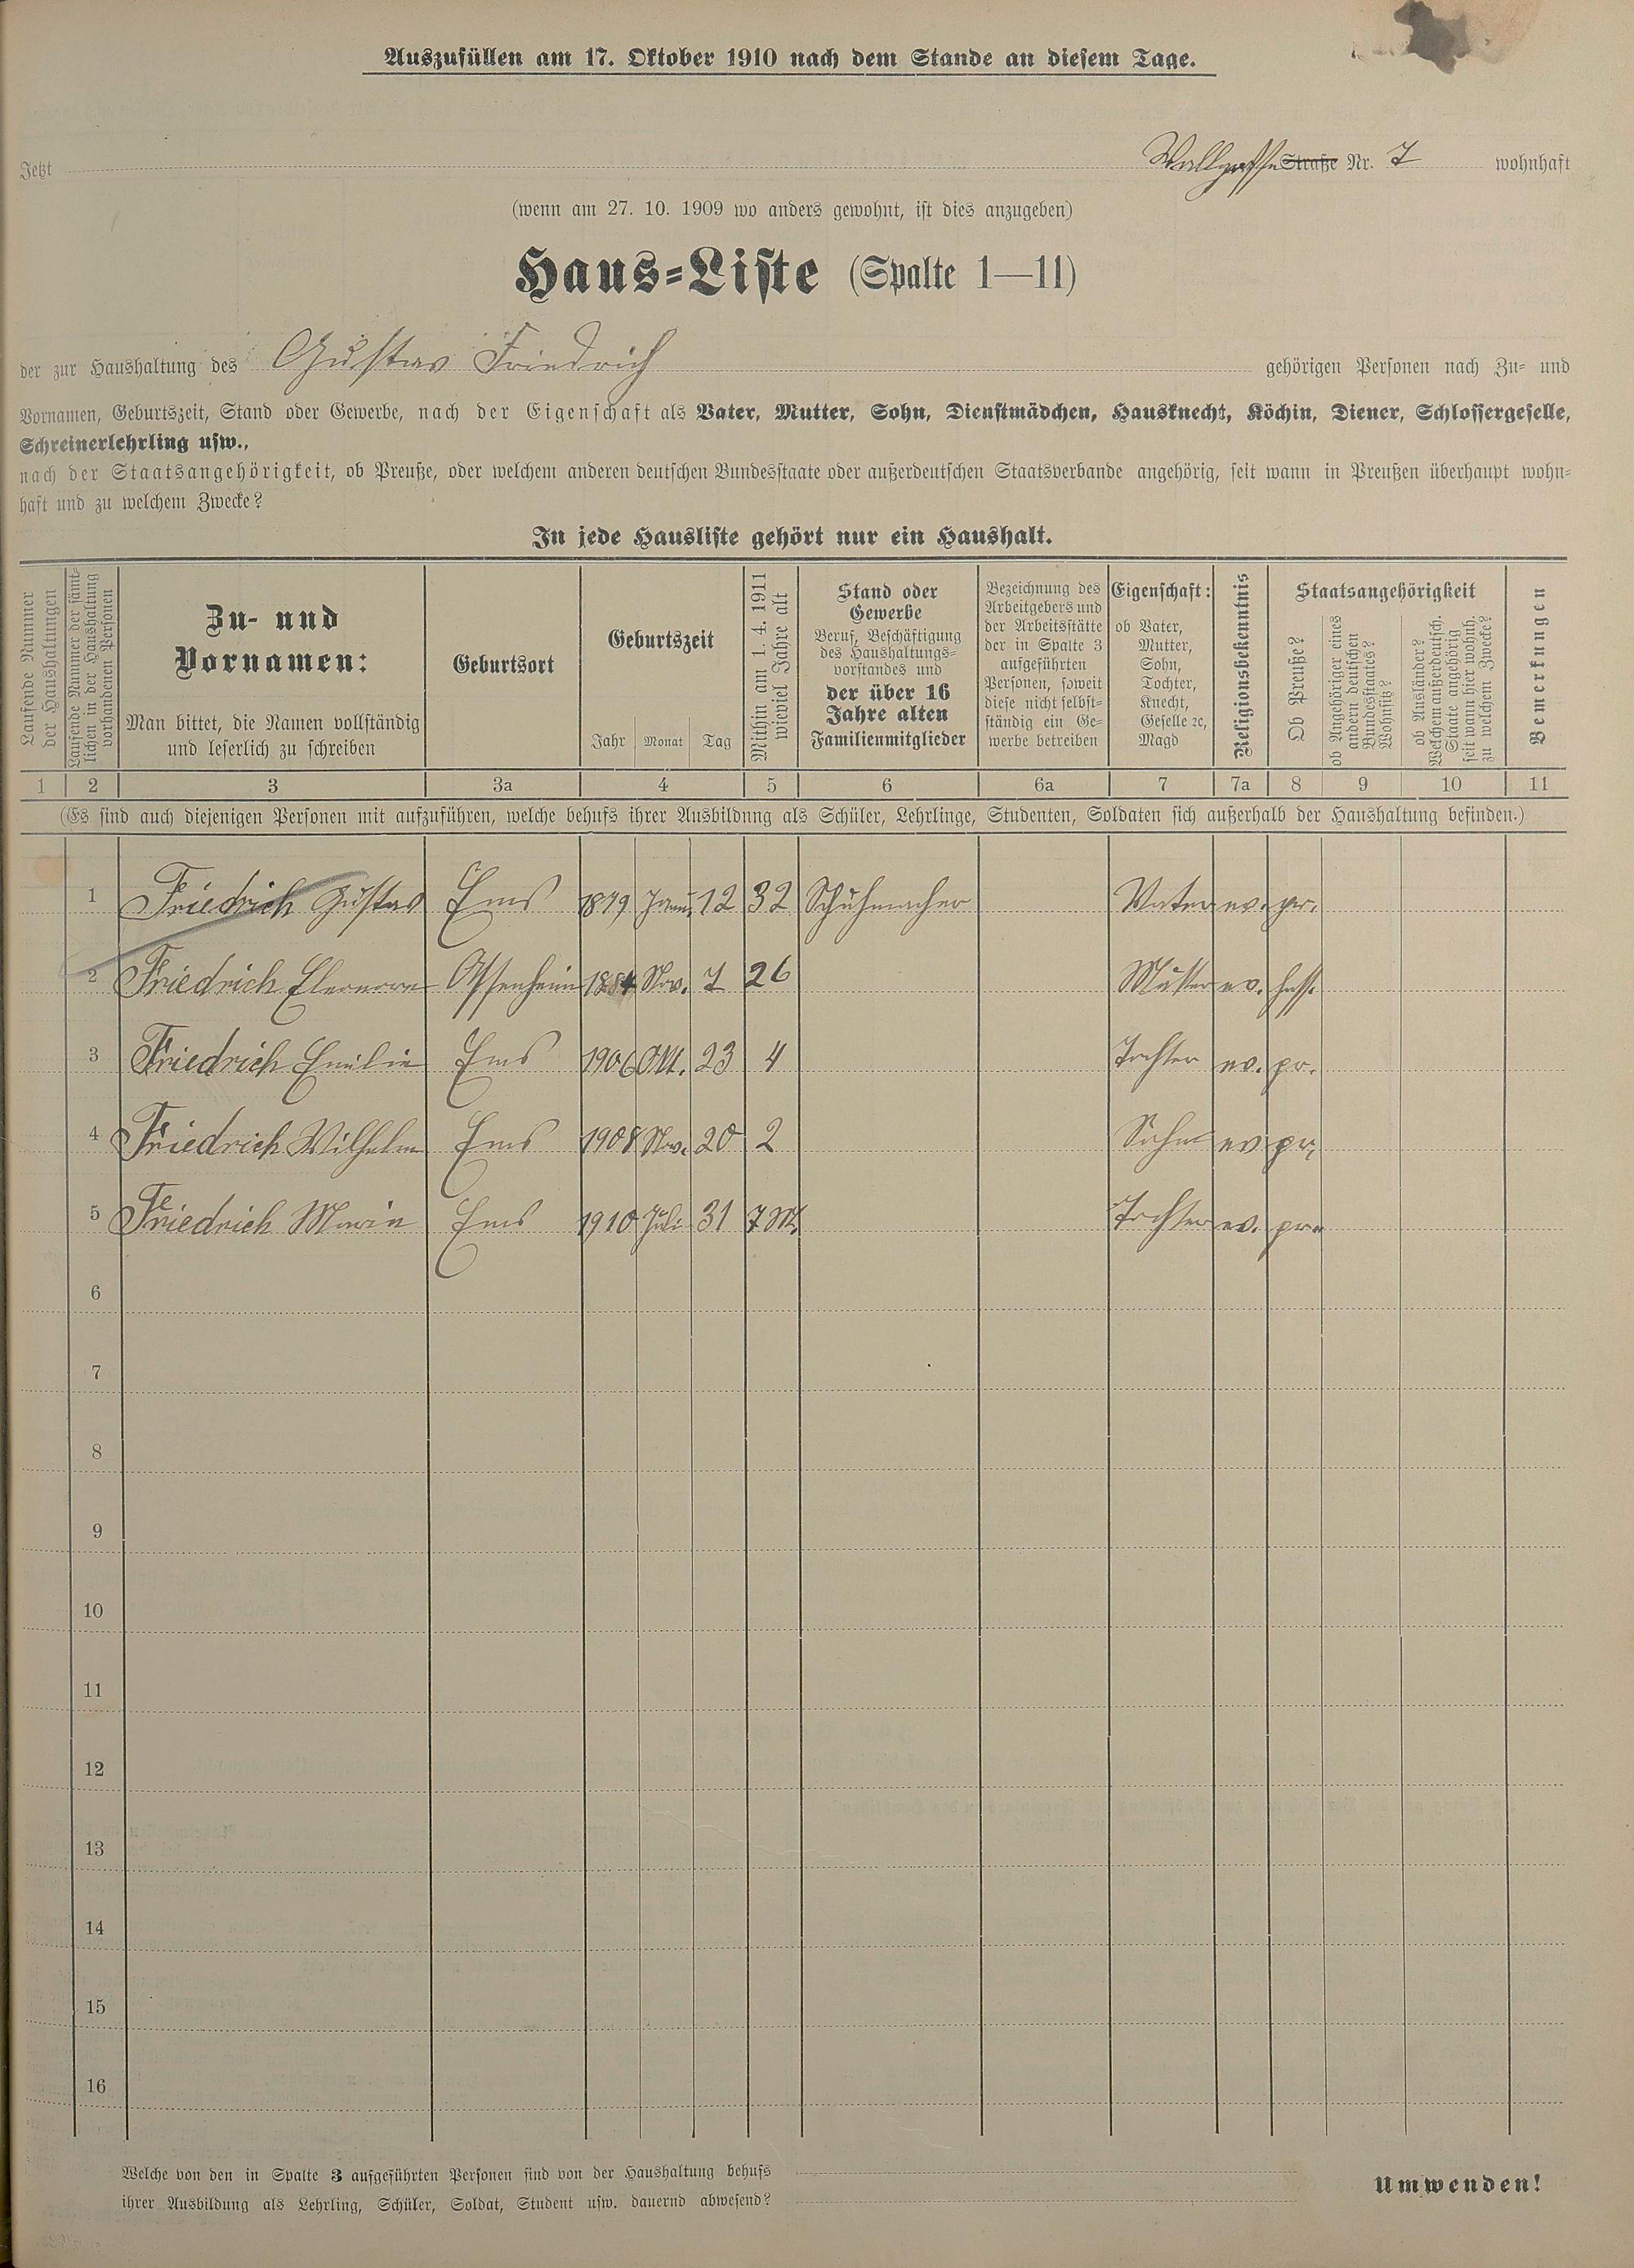 Auszufüllen am 17. Oktober 1910 nach dem Stande an diesem Tage.
Jetzt Wallgasse Straße Nr. 7 wohnhaft
(wenn am 27. 10. 1909 wo anders gewohnt, ist dies anzugeben)
Haus-Liste (Spalte 1—11)
der zur Haushaltung des Gustav Friedrich gehörigen Personen nach Zu- und
Vornamen, Geburtszeit, Stand oder Gewerbe, nach der Eigenschaft als Vater, Mutter, Sohn, Dienstmädchen, Hausknecht, Köchin, Diener, Schlossergeselle,
Schreinerlehrling usw.,
nach der Staatsangehörigkeit, ob Preuße, oder welchem anderen deutschen Bundesstaate oder außerdeutschen Staatsverbande angehörig, seit wann in Preußen überhaupt wohn-
haft und zu welchem Zwecke?
In jede Hausliste gehört nur ein Haushalt.
Laufende Nummer
der Haushaltungen
Laufende Nummer der sämt-
lichen in der Haushaltung
vorhandenen Personen
Zu- und
Vornamen:
Man bittet, die Namen vollständig
und leserlich zu schreiben
Geburtsort
Geburtszeit
Jahr Monat Tag
Mithin am 1. 4. 1911
wieviel Jahre alt
Stand oder
Gewerbe
Beruf, Beschäftigung
des Haushaltungs-
vorstandes und
der über 16
Jahre alten
Familienmitglieder
Bezeichnung des
Arbeitgebers und
der Arbeitsstätte
der in Spalte 3
aufgeführten
Personen, soweit
diese nicht selbst-
ständig ein Ge-
werbe betreiben
Eigenschaft:
ob Vater,
Mutter,
Sohn,
Tochter,
Knecht,
Geselle ꝛc,
Magd
Religionsbekenntnis
Staatsangehörigkeit
Ob Preuße?
ob Angehöriger eines
andern deutschen
Bundesstaates?
Wohnsitz?
ob Ausländer?
Welchem außerdeutsch.
Staate angehörig
seit wann hier wohnh.
zu welchem Zwecke?
Bemerkungen
1 2 3 3a 4 5 6 6a 7 7a 8 9 10 11
(Es sind auch diejenigen Personen mit aufzuführen, welche behufs ihrer Ausbildnng als Schüler, Lehrlinge, Studenten, Soldaten sich außerhalb der Haushaltung befinden.)
1 Friedrich Gustav Ems 1879 Janu. 12 32 Schuhmacher Vater ev. pr.
2 Friedrich Eleonore Assenheim 1884 Nov. 7 26 Mutter ev. hess.
3 Friedrich Emilie Ems 1906 Okt. 23 4 Tochter ev. pr.
4 Friedrich Wilhelm Ems 1908 Nov. 20 2 Sohn ev pr,
5 Friedrich Marie Ems 1910 Juli 31 7 M. Tochter ev. pr.
6
7
8
9
10
11
12
13
14
15
16
Welche von den in Spalte 3 aufgeführten Personen sind von der Haushaltung behufs
ihrer Ausbildung als Lehrling, Schüler, Soldat, Student usw. dauernd abwesend?
Umwenden!